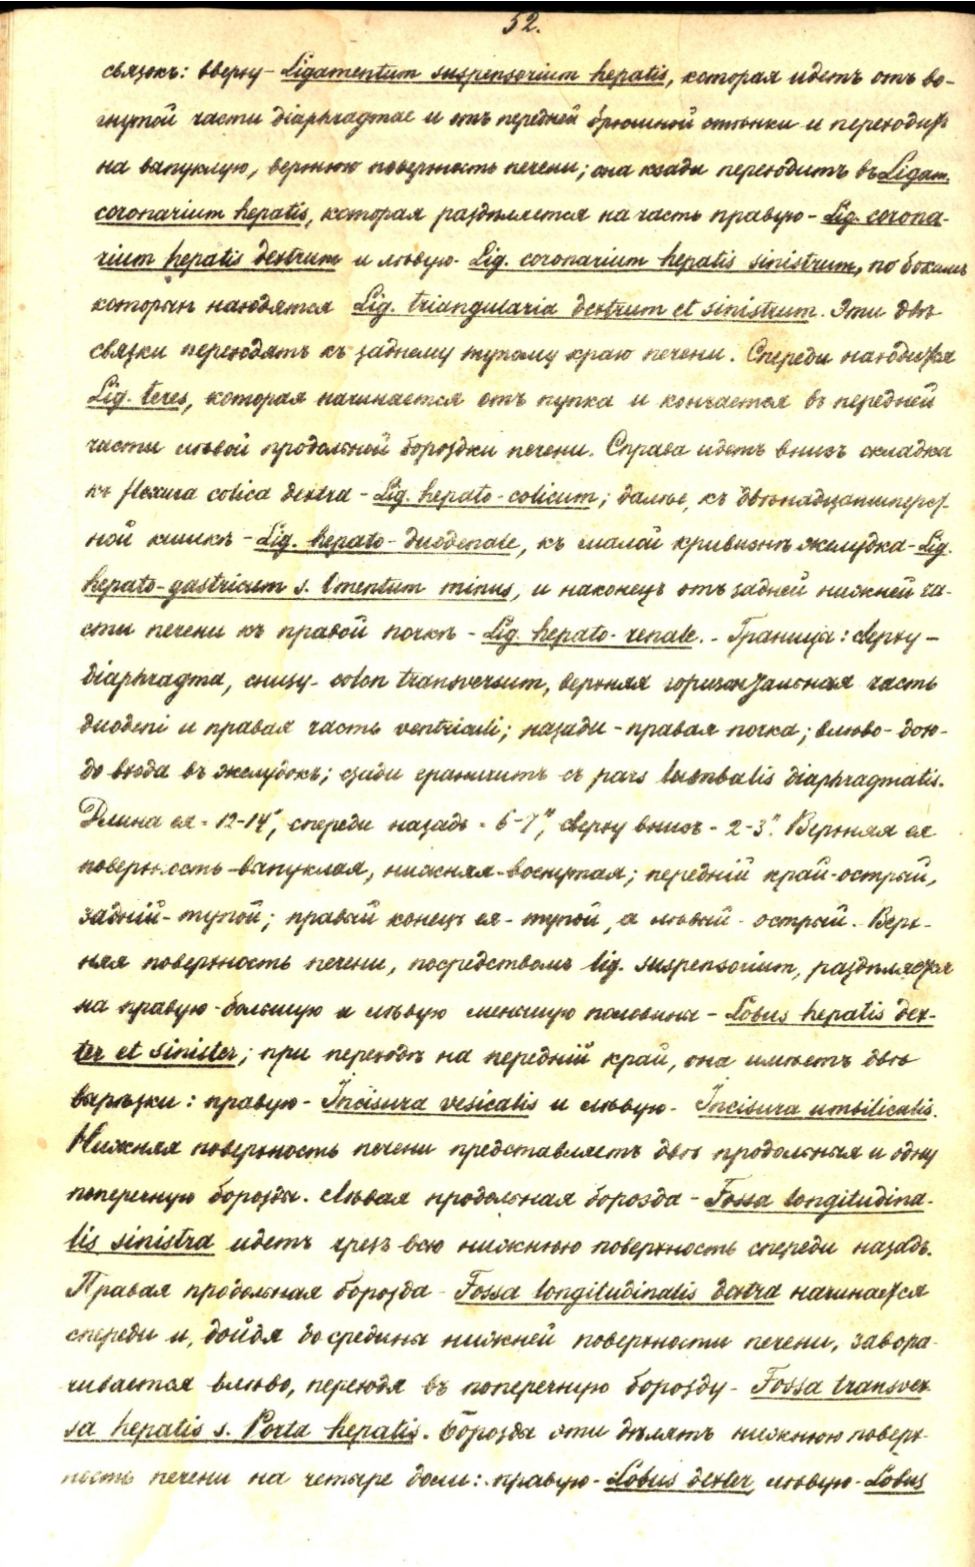 52.
связокъ: вверху - Ligamentum suspensorium hepatis, которая идетъ отъ во-
гнутой части diaphragmae и отъ передней брюшной стѣнки и переходитъ
на выпуклую, верхнюю поверхность печени; она кзади переходитъ въ Ligam.
coronarium hepatis, которая раздѣляется на часть правую - Lig. corona-
rium hepatis dextrum и лѣвую - Lig. coronarium hepatis sinistrum, по бокамъ
которыхъ находятся Lig. triangularia dextrum et sinistrum. Эти двѣ
связки переходятъ къ заднему тупому краю печени. Спереди находится
Lig. teres, которая начинается отъ пупка и кончается въ передней
части лѣвой продольной бороздки печени. Справа идетъ внизъ складка
къ flexura colica dextra - Lig. hepato-colicum; далѣе, къ двѣнадцатиперст-
ной кишкѣ - Lig. hepato-duodenale, къ малой кривизнѣ желудка - Lig.
hepato-gastricum s. Omentum minus, и наконецъ отъ задней нижней ча-
сти печени къ правой почкѣ - Lig. hepato-renale. - Граница: сверху -
diaphragma, снизу - colon transversum, верхняя горизонтальная часть
duodeni и правая часть ventriculi; назади - правая почка; влѣво - дохо-
до входа въ желудокъ; сзади граничитъ съ pars lumbalis diaphragmatis.
Длина ея - 12-14", спереди назадъ - 6-7", сверху внизъ - 2-3". Верхняя ея
поверхность - выпуклая, нижняя - вогнутая; передній край - острый,
задній - тупой; правый конецъ ея - тупой, а лѣвый - острый. Верх-
няя поверхность печени, посредствомъ lig. suspensorium, раздѣляется
на правую - большую и лѣвую меньшую половины - Lobus hepatis dex-
ter et sinister; при переходѣ на передній край, она имѣетъ двѣ
вырѣзки: правую - Incisura vesicalis и лѣвую - Incisura umbilicalis.
Нижняя поверхность печени представляетъ двѣ продольныя и одну
поперечную борозды. Лѣвая продольная борозда - Fossa longitudina-
lis sinistra идетъ чрезъ всю нижнюю поверхность спереди назадъ.
Правая продольная борозда - Fossa longitudinalis dextra начинается
спереди и, дойдя до средины нижней поверхности печени, завора-
чивается влѣво, переходя въ поперечную борозду - Fossa transver-
sa hepatis s. Porta hepatis. Борозды эти дѣлятъ нижнюю поверх-
ность печени на четыре доли: правую - Lobus dexter, лѣвую - Lobus